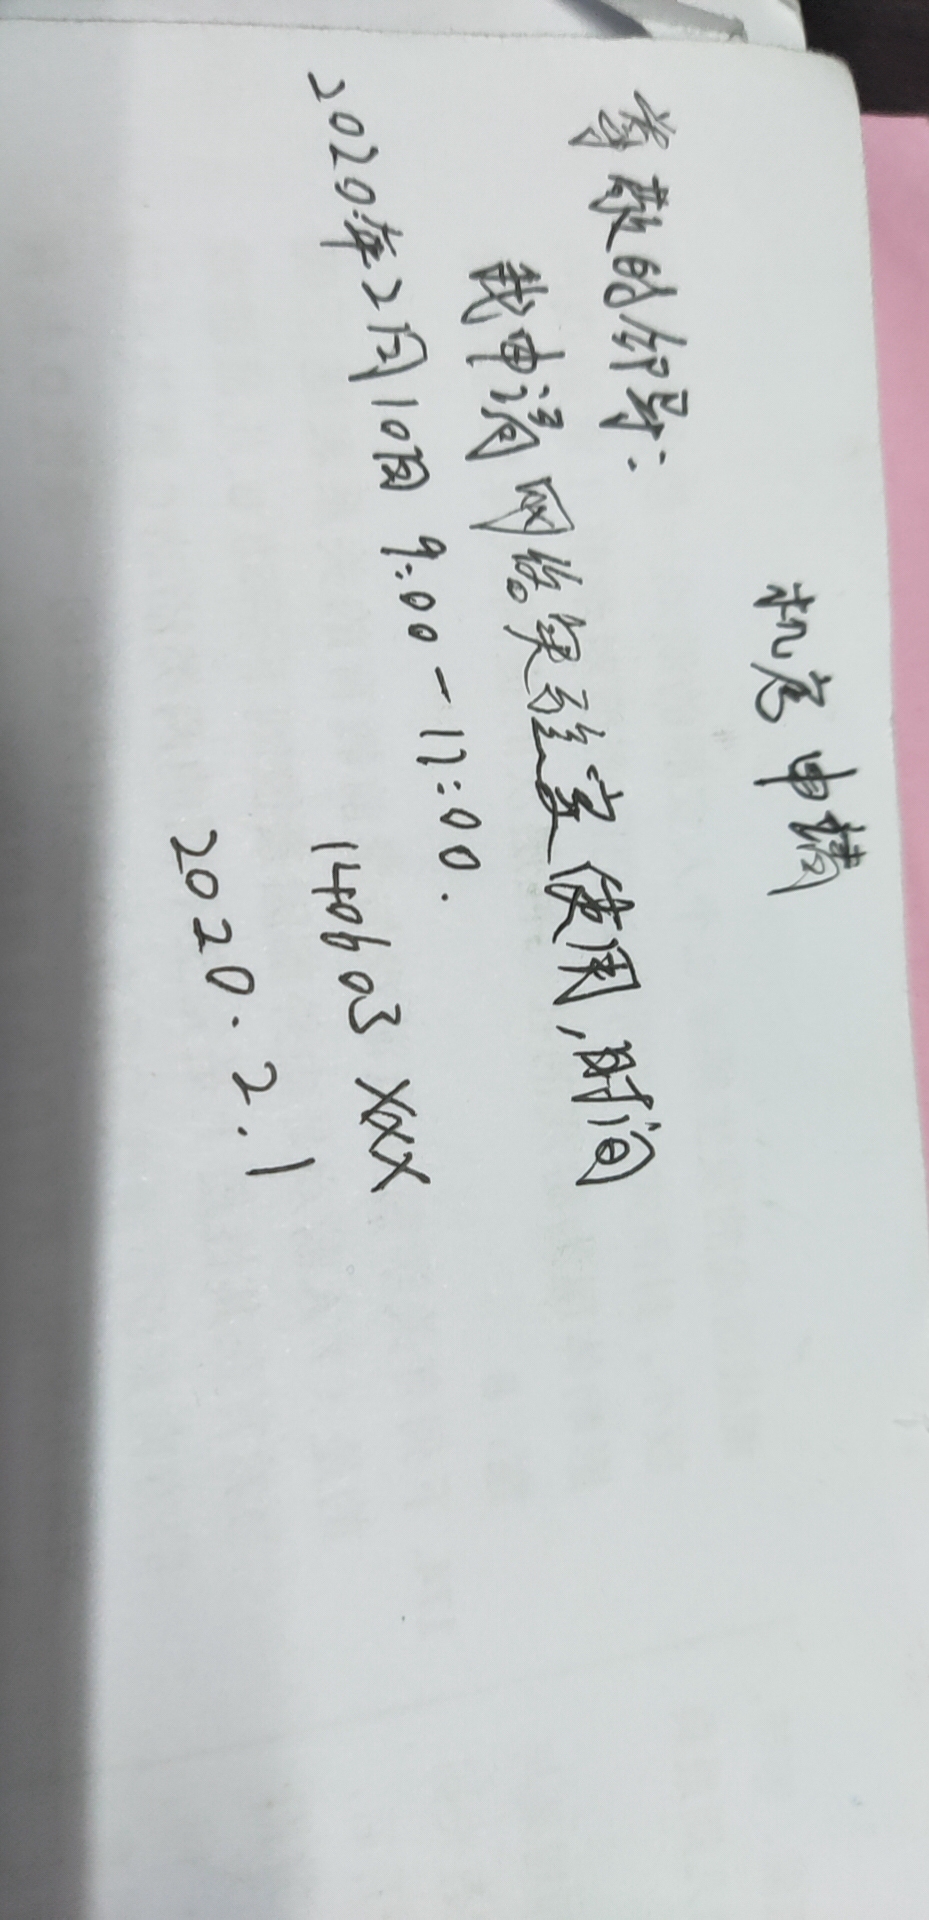 机房申请
尊敬的领导：
我申请网络实验室使用，时间
2020年2月10日 9:00-12:00.
140603 XXX
2020.2.1